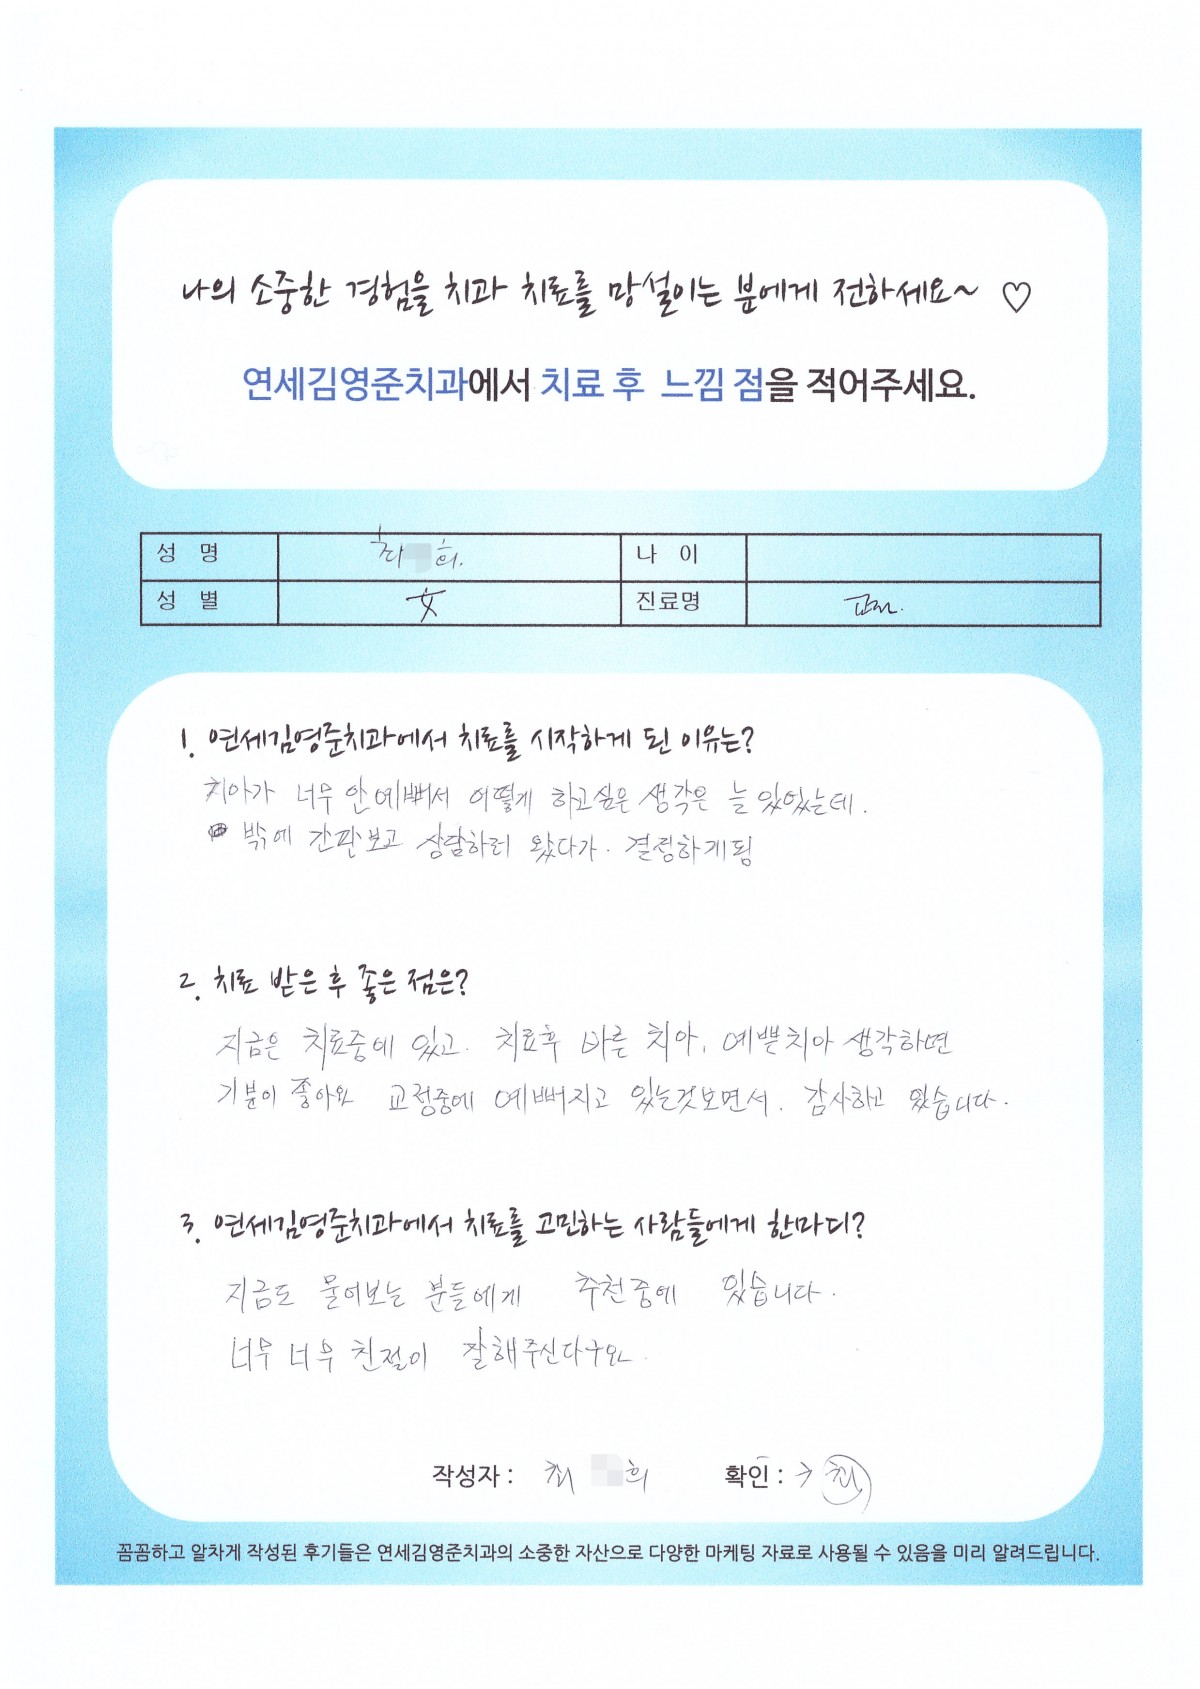 나의 소중한 경험을 치과 치료를 망설이는 분에게 전하세요~ ♡
연세김영준치과에서 치료 후 느낌 점을 적어주세요.
성 명 최 희. 나 이
성 별 女 진료명 교정.
1. 연세김영준치과에서 치료를 시작하게 된 이유는?
치아가 너무 안예뻐서 어떻게 하고싶은 생각은 늘 있었는데.
밖에 간판보고 상담하러 왔다가. 결정하게됨
2. 치료 받은 후 좋은 점은?
지금은 치료중에 있고. 치료후 바른 치아, 예쁜치아 생각하면
기분이 좋아요 교정중에 예뻐지고 있는것보면서. 감사하고 있습니다.
3. 연세김영준치과에서 치료를 고민하는 사람들에게 한마디?
지금도 물어보는 분들에게 추천중에 있습니다.
너무 너무 친절이 잘해주신다구요.
작성자 : 최 희 확인 :
꼼꼼하고 알차게 작성된 후기들은 연세김영준치과의 소중한 자산으로 다양한 마케팅 자료로 사용될 수 있음을 미리 알려드립니다.